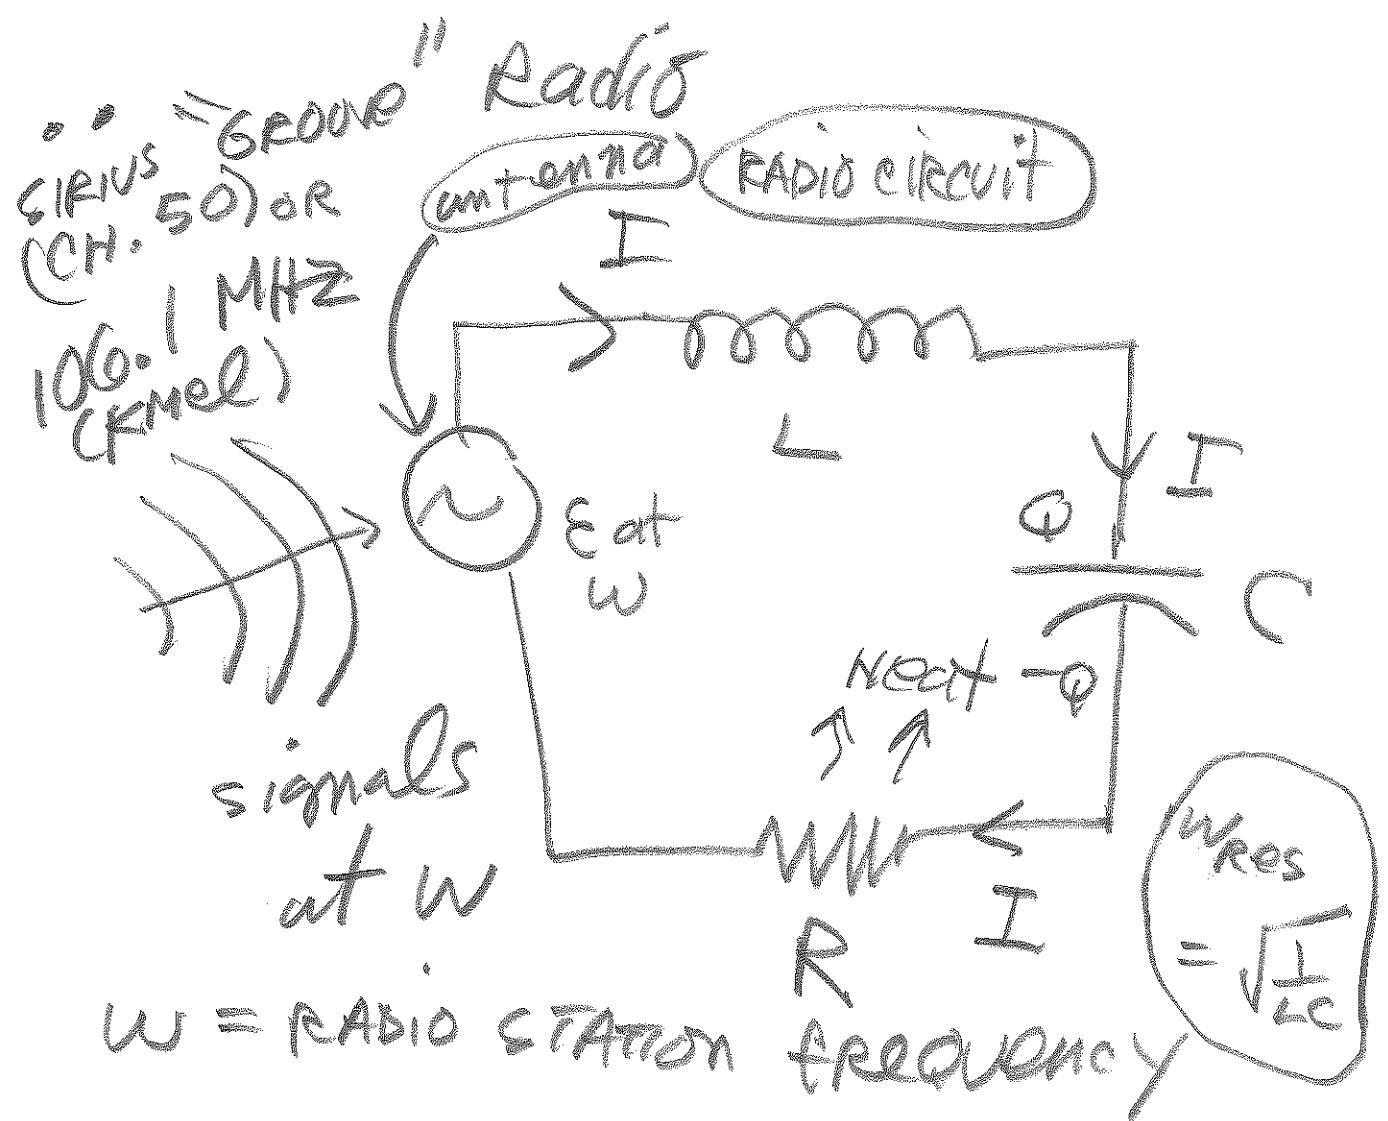 Radio
SIRIUS "GROOVE"
(CH. 50) OR
106.1 MHZ
(KMel)
antenna
RADIO CIRCUIT
I
L
I
Q
C
-Q
Ɛ at
ω
Heat
signals
at ω
I
R
ωRES
= √1/LC
ω = RADIO STATION frequency